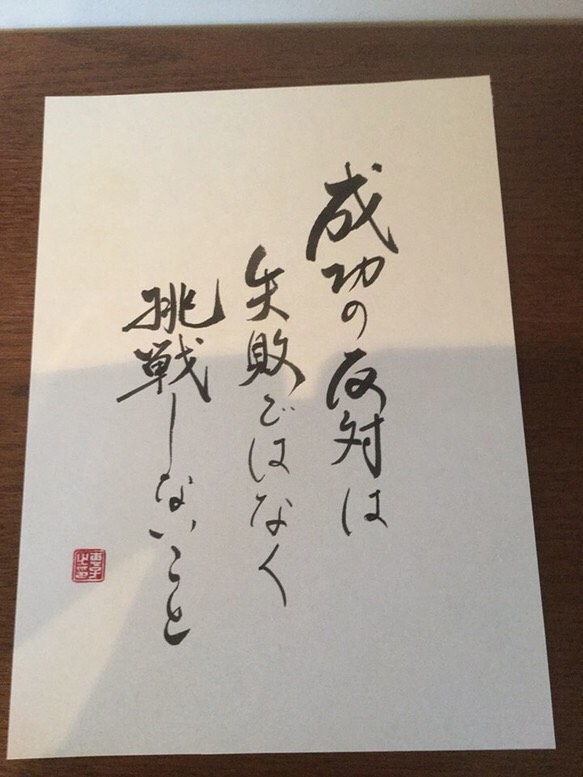 成功の反対は
失敗ではなく
挑戦しないこと